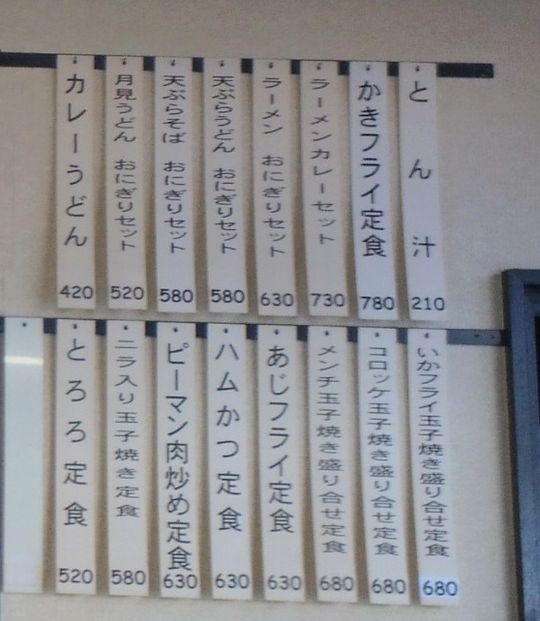 とん汁 210
かきフライ定食 780
ラーメンカレーセット 730
ラーメン おにぎりセット 630
天ぷらうどん おにぎりセット 580
天ぷらそば おにぎりセット 580
月見うどん おにぎりセット 520
カレーうどん 420
いかフライ玉子焼き盛り合せ定食 680
コロッケ玉子焼き盛り合せ定食 680
メンチ玉子焼き盛り合せ定食 680
あじフライ定食 630
ハムかつ定食 630
ピーマン肉炒め定食 630
ニラ入り玉子焼き定食 580
とろろ定食 520